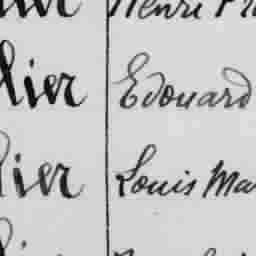 Henri
lier Edouard
lier Louis Ma